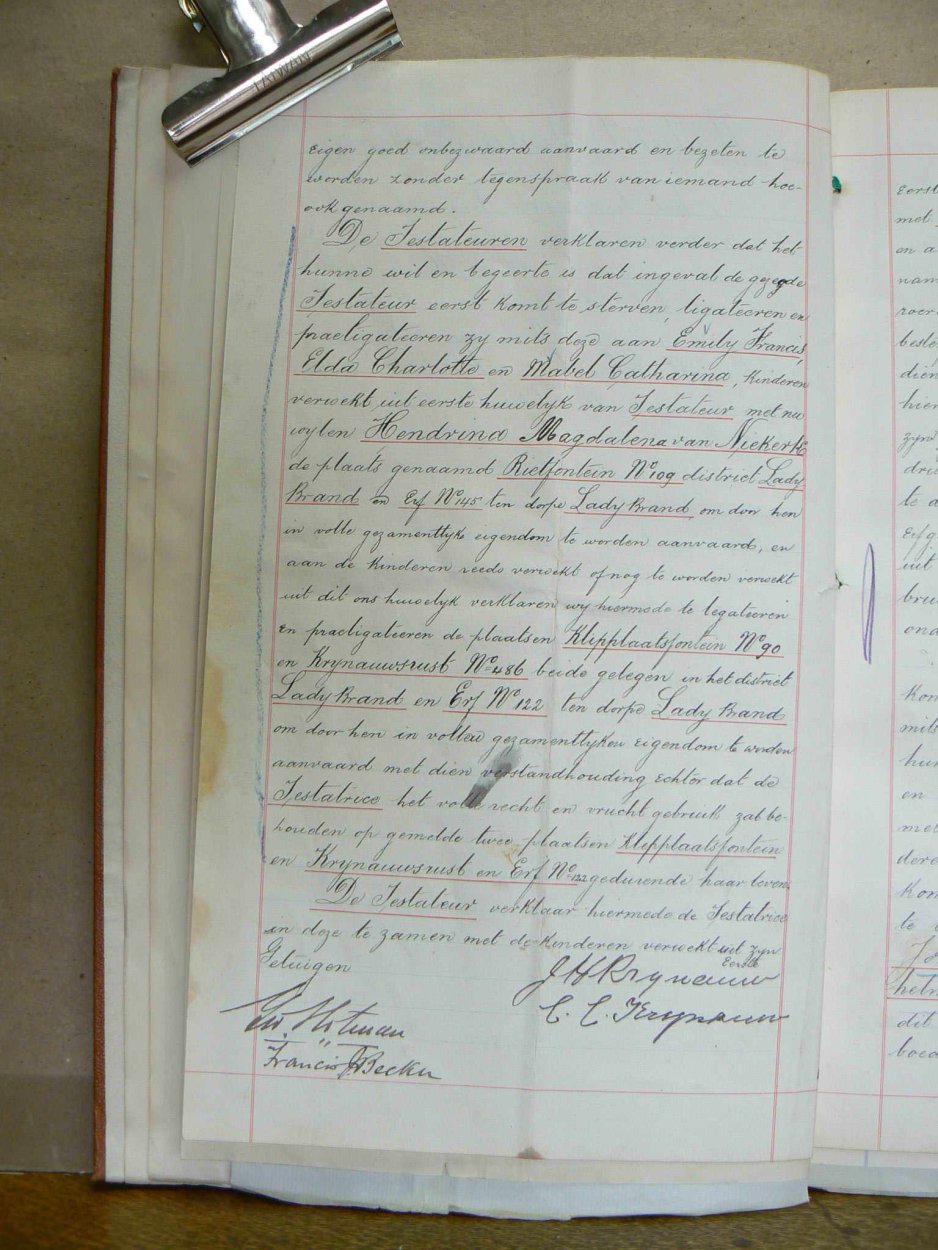 TAIWAN
eigen goed onbezwaard aanvaard en bezeten te
worden zonder tegenspraak van iemand hoe-
ook genaamd.
De Testateuren verklaren verder dat het
hunne wil en begeerte is dat ingeval de gezegde
Testateur eerst komt te sterven, ligateeren en
praeligateeren zy mits deze aan Emily Francis,
Elda Charlotte en Mabel Catharina, kinderen
verwekt uit eerste huwelyk van Testateur met nu
wylen Hendrina Magdalena van Niekerk
de plaats genaamd Rietfontein No 109 district Lady
Brand en Erf No 145 ten dorpe Lady Brand om door hen
in volle gezamentlyk eigendom te worden aanvaard, en
aan de kinderen reeds verwekt of nog te worden verwekt
uit dit ons huwelyk verklaren wy hiermede te legateeren
en praeligateeren de plaatsen Klipplaatsfontein No 90
en Krynauwsrust No 486 beide gelegen in het district
Lady Brand en Erf No 122 ten dorpe Lady Brand
om door hen in vollen gezamentlyken eigendom te worden
aanvaard met dien verstandhouding echter dat de
Testatrice het volle recht en vrucht gebruik zal be-
houden op gemelde twee plaatsen Klipplaatsfontein
en Krynauwsrust en Erf No 122 gedurende haar leven.
De Testateur verklaar hiermede de Testatrice
in deze te zamen met de kinderen verwekt uit zyn
Eerste
Getuigen
J H Krynauw
C. C. Krynauw
Francis Becker
Eerst
met
en a
nam
roer
beste
dien
hier
zyn
drie
te a
Erfg
uit
bru
ond
Kom
mits
hun
en
met
dere
Kom
te
hetr
dit